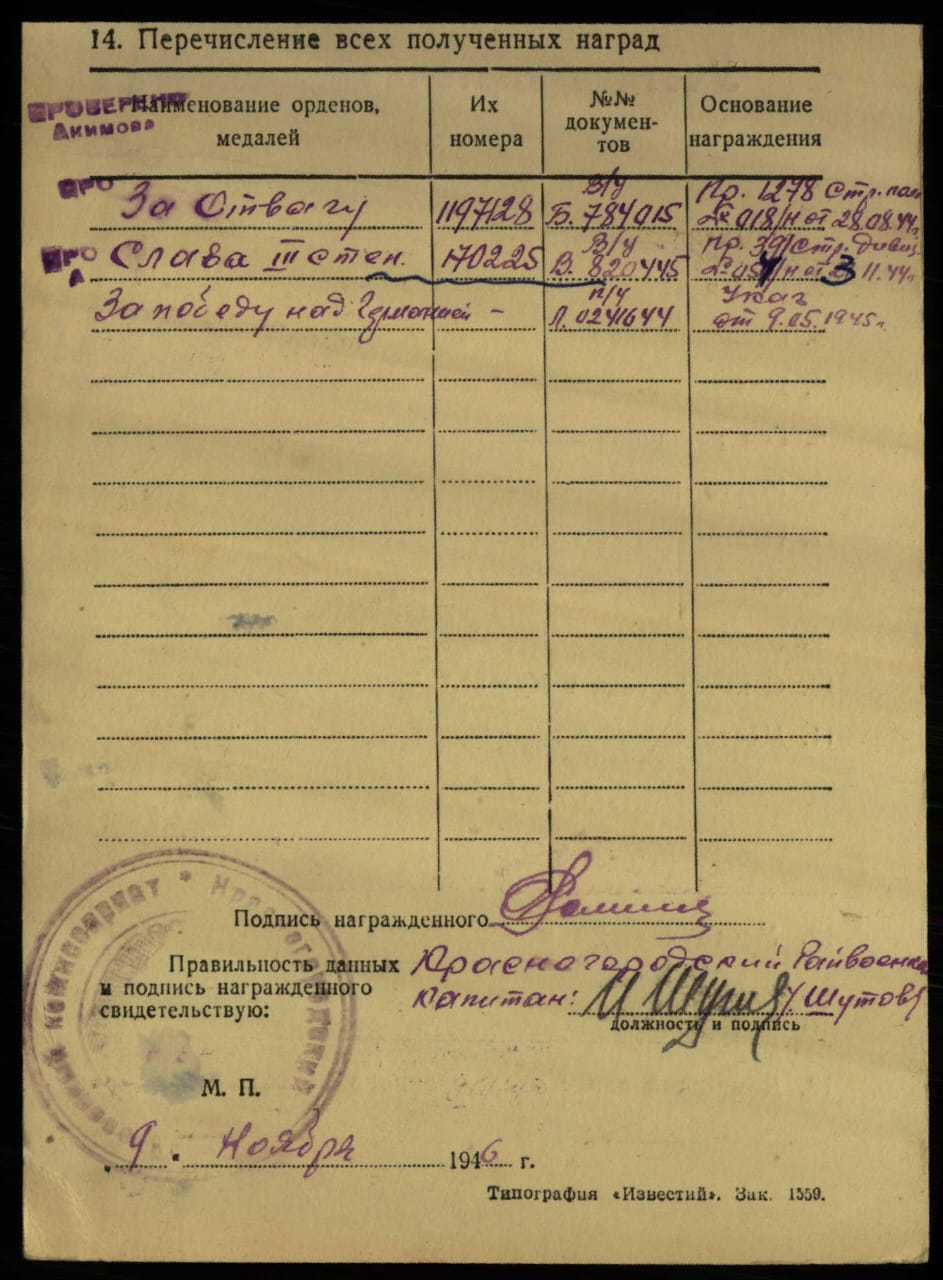 14. Перечисление всех полученных наград
Наименование орденов, медалей
Их номера
№№ документов
Основание награждения
ПРОВЕРЕНО
Акимова
ПРО
За Отвагу
1197128
В/у
Б. 784015
Пр. 1278 Стр. пол
№ 018/н от 28.08.44г.
ПРО
А
Слава III степ.
170225
В/у
В. 820445
Пр. 39/стр. дивиз
/н от 3 11.44г.
За победу над Германией
-
п/у
Л. 0241644
Указ
от 9.05.1945г.
Подпись награжденного
Правильность данных
и подпись награжденного
свидетельствую:
Красногородский Райвоенком
капитан:
/Шутов/
должность и подпись
М. П.
„ 9 “ Ноября 1946 г.
Типография «Известий». Зак. 1559.